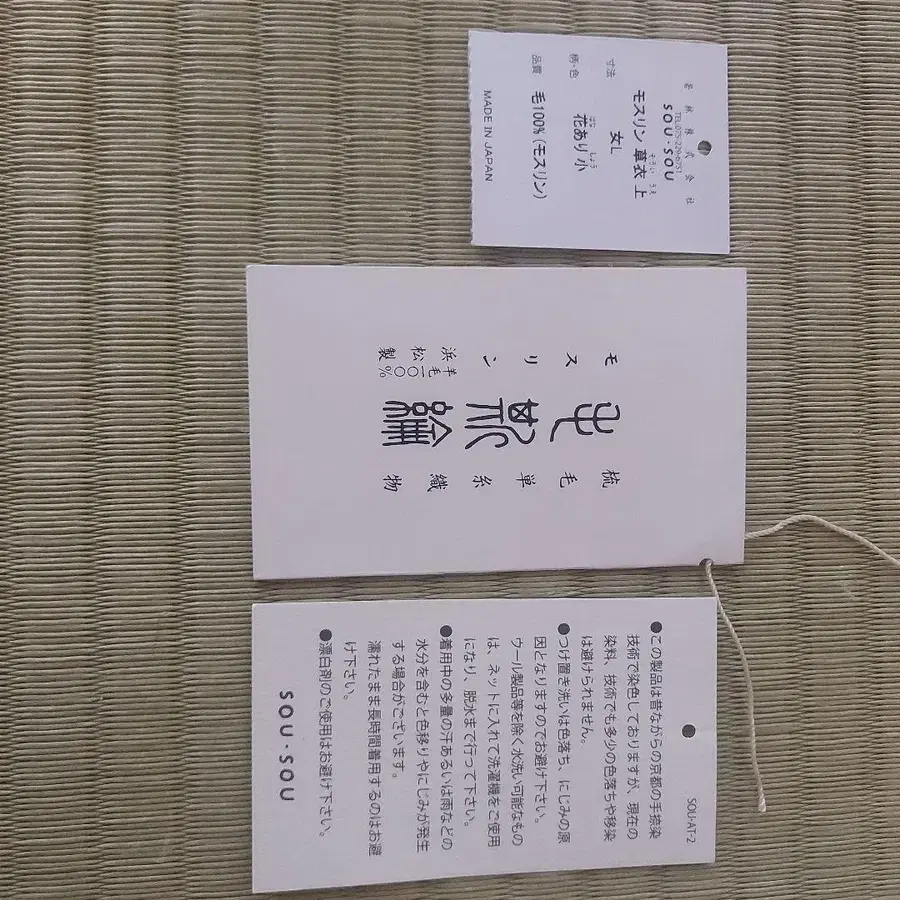 若林株式会社
TEL.075/229-6751
SOU・SOU
そうい うえ
モスリン 草衣 上
寸法 女L
はな しょう
柄・色 花あり 小
品質 毛100%(モスリン)
MADE IN JAPAN
梳毛単糸織物
毛斯綸
モスリン 浜松製
羊毛一〇〇%
SOU-AT-2
●この製品は昔ながらの京都の手捺染
技術で染色しておりますが、現在の
染料、技術でも多少の色落ちや移染
は避けられません。
●つけ置き洗いは色落ち、にじみの原
因となりますのでお避け下さい。
ウール製品等を除く水洗い可能なもの
は、ネットに入れて洗濯機をご使用
になり、脱水まで行って下さい。
●着用中の多量の汗あるいは雨などの
水分を含むと色移りやにじみが発生
する場合がございます。
濡れたまま長時間着用するのはお避
け下さい。
●漂白剤のご使用はお避け下さい。
SOU・SOU